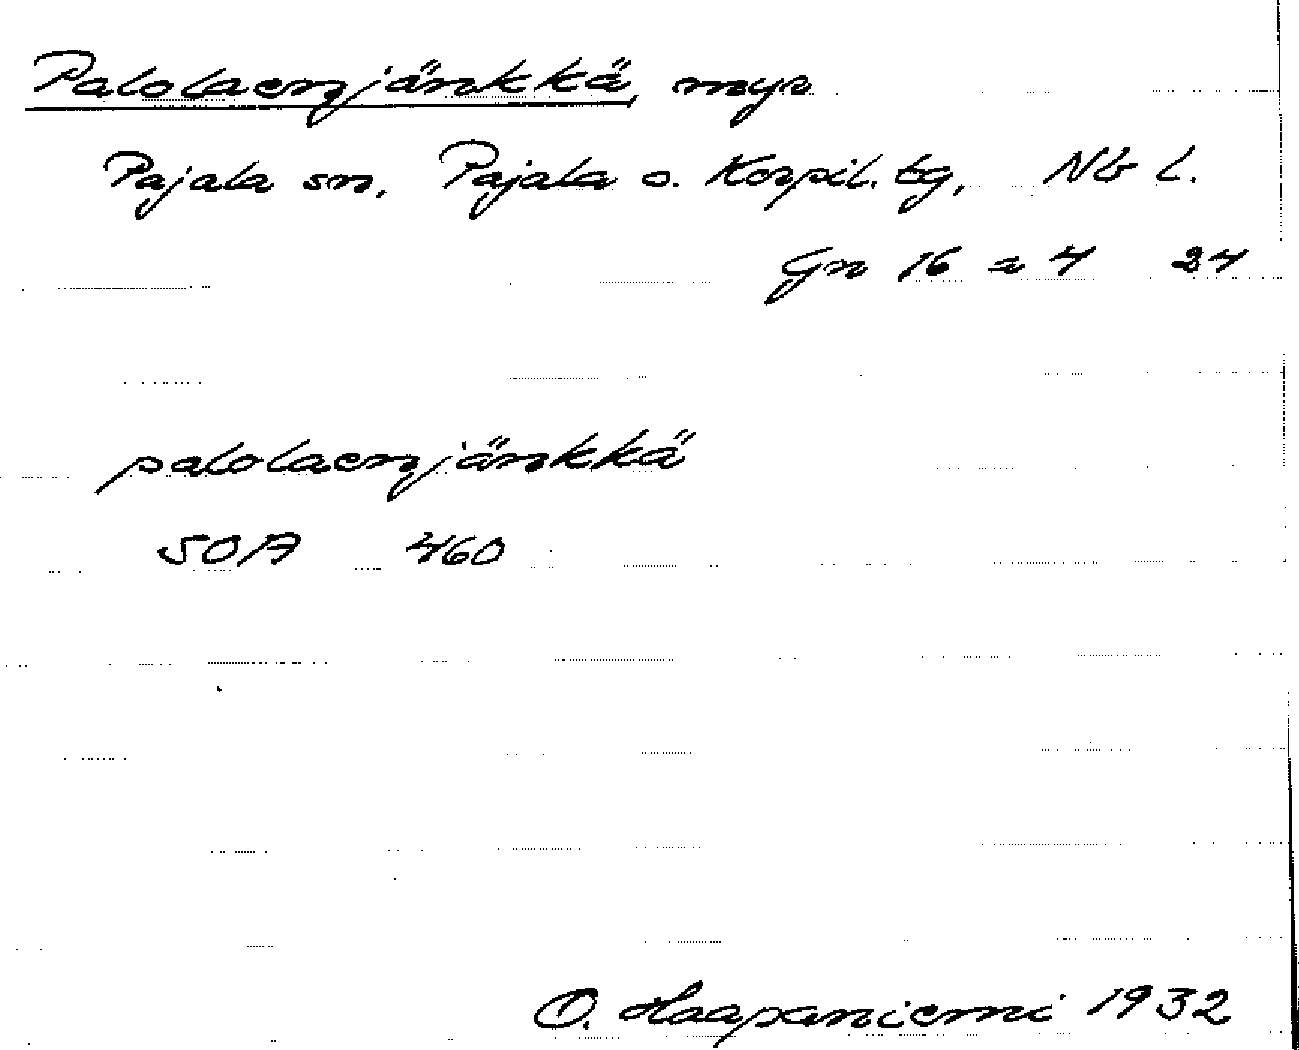 Palolaenjänkkä, myr
Pajala sn, Pajala o. Korpil. tg, Nb l.
Gn 16 a 4 24
palolaenjänkkä
50A 460
O. Haapaniemi 1932